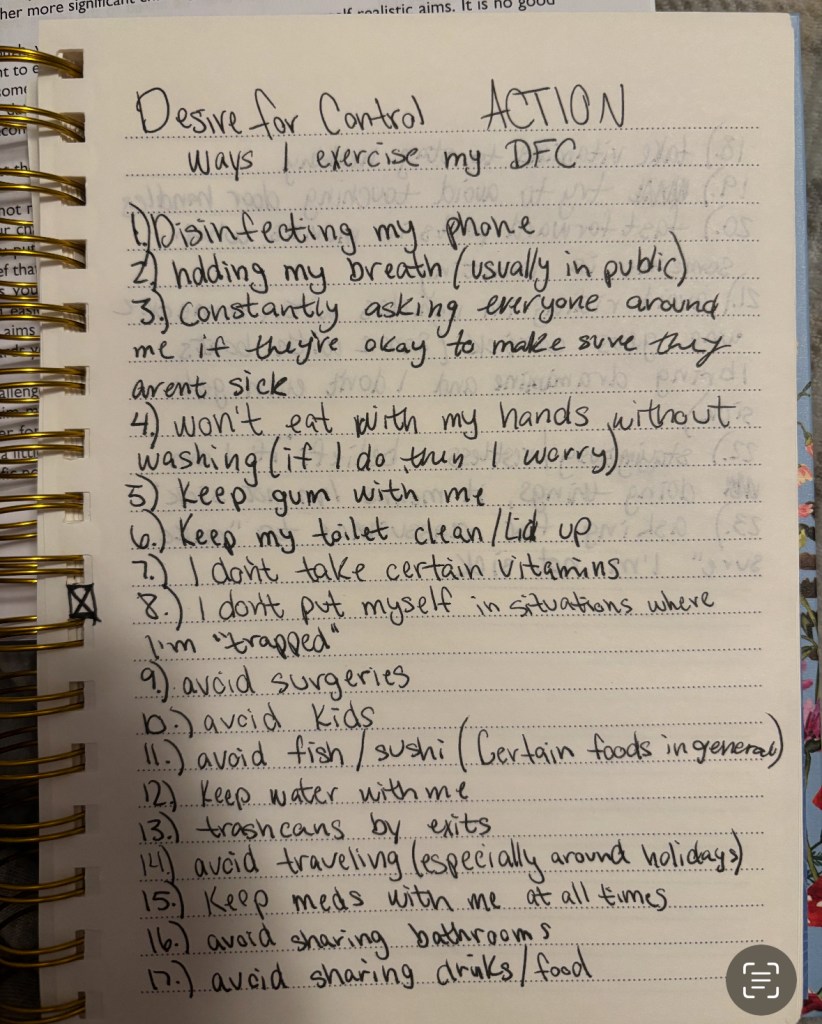 her more significant
realistic aims. It is no good
Desire for Control ACTION
ways I exercise my DFC
1.) Disinfecting my phone
2.) holding my breath (usually in public)
3.) constantly asking everyone around
me if they're okay to make sure they
arent sick
4.) won't eat with my hands without
washing (if I do then I worry)
5.) keep gum with me
6.) Keep my toilet clean/Lid up
7.) I don't take certain vitamins
8.) I don't put myself in situations where
I'm "trapped"
9.) avoid surgeries
10.) avoid kids
11.) avoid fish/sushi (Certain foods in general)
12.) Keep water with me
13.) trashcans by exits
14.) avoid traveling (especially around holidays)
15.) Keep meds with me at all times
16.) avoid sharing bathrooms
17.) avoid sharing drinks/food